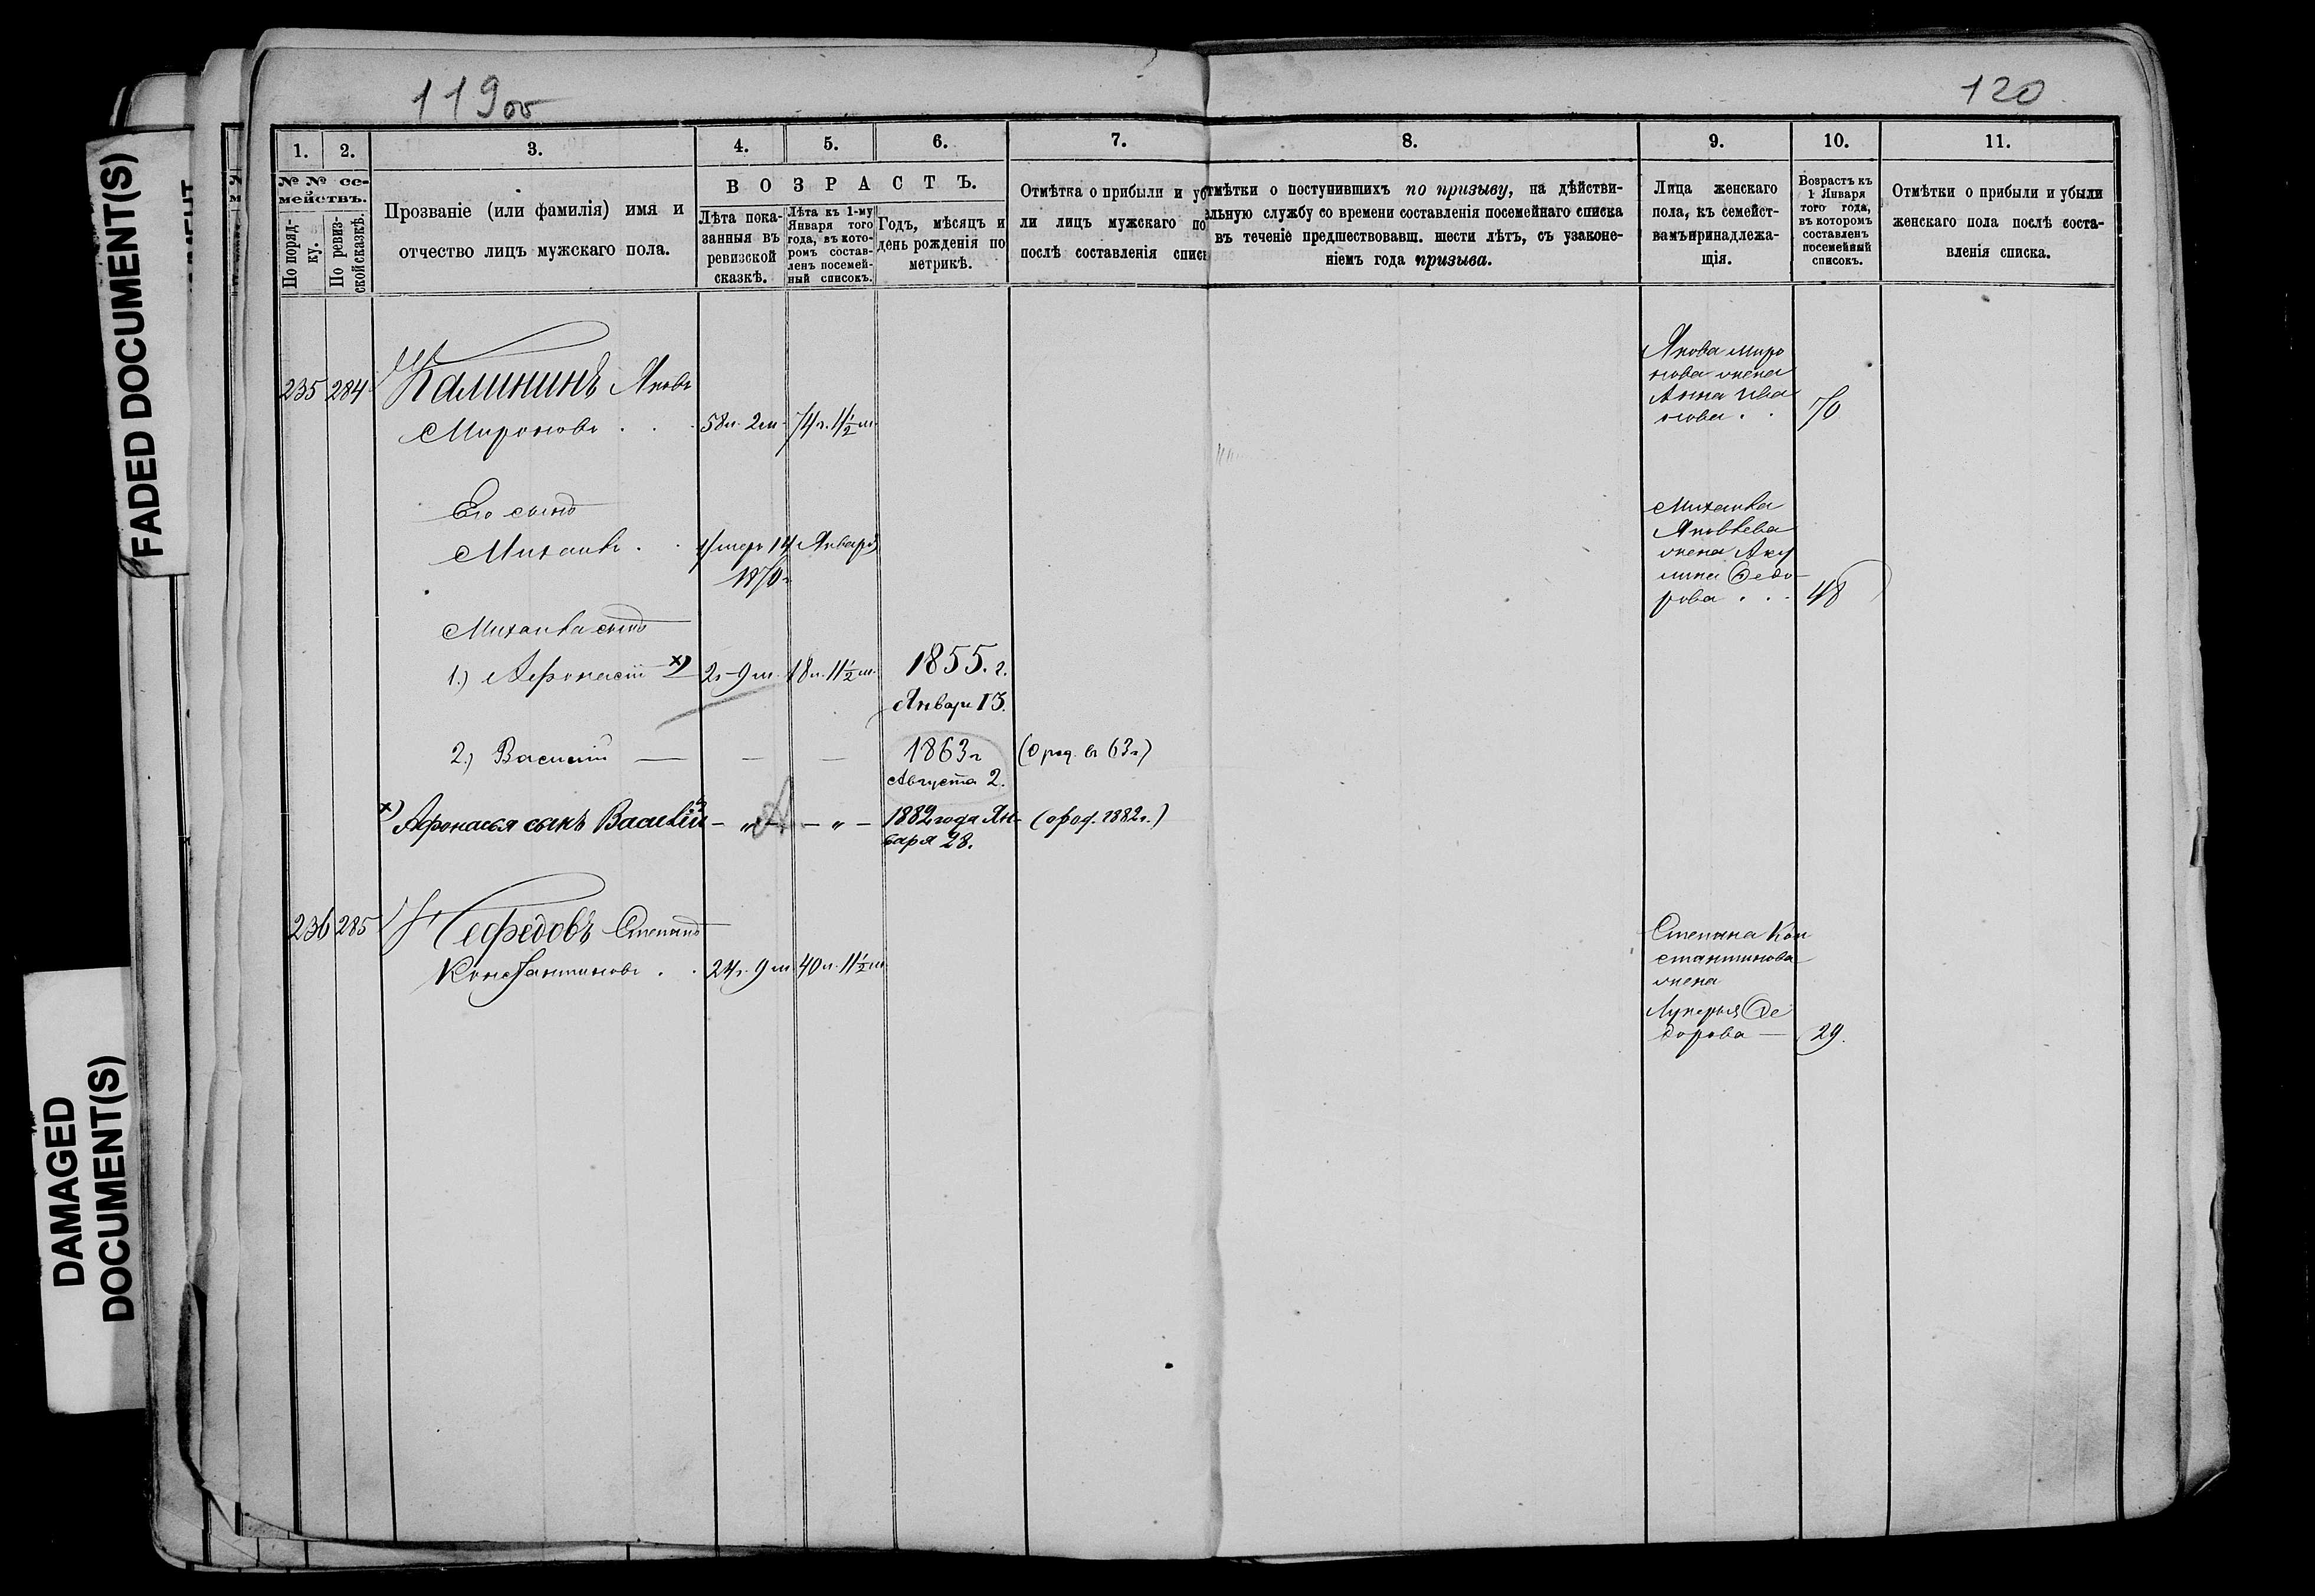 FADED DOCUMENT(S)
DAMAGED
DOCUMENT(S)
119об
120
1. 2. 3. 4. 5. 6. 7. 8. 9. 10. 11.
№ № се-
мействъ.
По поряд-
ку.
По ревиз-
ской сказкѣ.
Прозваніе (или фамилія) имя и
отчество лицъ мужскаго пола.
ВОЗРАСТЪ.
Лѣта пока-
занныя въ
ревизской
сказкѣ.
Лѣта къ 1-му
Января того
года, въ кото-
ромъ состав-
ленъ посемей-
ный списокъ.
Годъ, мѣсяцъ и
день рожденія по
метрикѣ.
Отмѣтка о прибыли и уб
ли лицъ мужскаго по
послѣ составленія спис
тмѣтки о поступившихъ по призыву, на дѣйстви-
ельную службу со времени составленія посемейнаго списка
въ теченіе предшествовавш. шести лѣтъ, съ узаконе-
ніемъ года призыва.
Лица женскаго
пола, къ семейст-
вамъ принадлежа-
щія.
Возрастъ къ
1 Января
того года,
въ которомъ
составленъ
посемейный
списокъ.
Отмѣтки о прибыли и убыли
женскаго пола послѣ соста-
вленія списка.
235 284 Калининъ Яковъ
Мироновъ . . . 58л. 2м. 74г. 11½м.
Якова Миро
нова жена
Анна Ива
нова . . 70
Его сынъ
Михаилъ . . Умеръ 14 Января
1870г.
Михаила
Яковлева
жена Аку
лина Федо-
рова . . . 48
Михаила сынъ
1.) Афонасій х) 2г. 9м. 18л. 11½м. 1855. г.
Января 13.
2.) Василій — — — 1863г (о род. въ 63г)
Августа 2.
х) Афонасья сынъ Василій - „ - - „ - 1882 года Ян- (о род. 1882г.)
варя 28.
236 285 Нефедовъ Степанъ
Константиновъ . . 24г. 9м. 40л. 11½м.
Степана Кон
стантинова
жена
Лукерья Фе
дорова — 29.